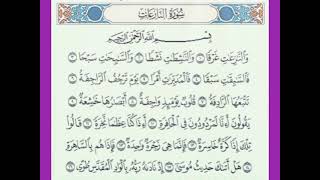 سُورَةُ النَّازِعَاتِ
بِسْمِ اللَّهِ الرَّحْمَٰنِ الرَّحِيمِ
وَالنَّازِعَاتِ غَرْقًا ١ وَالنَّاشِطَاتِ نَشْطًا ٢ وَالسَّابِحَاتِ سَبْحًا ٣
فَالسَّابِقَاتِ سَبْقًا ٤ فَالْمُدَبِّرَاتِ أَمْرًا ٥ يَوْمَ تَرْجُفُ الرَّاجِفَةُ ٦
تَتْبَعُهَا الرَّادِفَةُ ٧ قُلُوبٌ يَوْمَئِذٍ وَاجِفَةٌ ٨ أَبْصَارُهَا خَاشِعَةٌ ٩
يَقُولُونَ أَءِنَّا لَمَرْدُودُونَ فِي الْحَافِرَةِ ١٠ أَءِذَا كُنَّا عِظَامًا نَخِرَةً ١١ قَالُوا
تِلْكَ إِذًا كَرَّةٌ خَاسِرَةٌ ١٢ فَإِنَّمَا هِيَ زَجْرَةٌ وَاحِدَةٌ ١٣ فَإِذَا هُم بِالسَّاهِرَةِ
١٤ هَلْ أَتَاكَ حَدِيثُ مُوسَىٰ ١٥ إِذْ نَادَاهُ رَبُّهُ بِالْوَادِ الْمُقَدَّسِ طُوًى ١٦